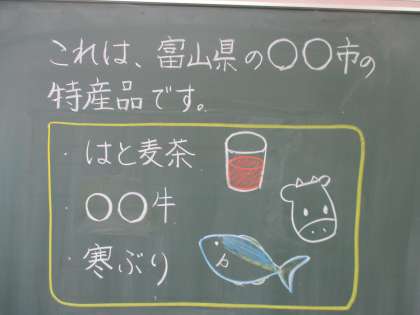 これは、富山県の○○市の
特産品です。
・はと麦茶
・○○牛
・寒ぶり